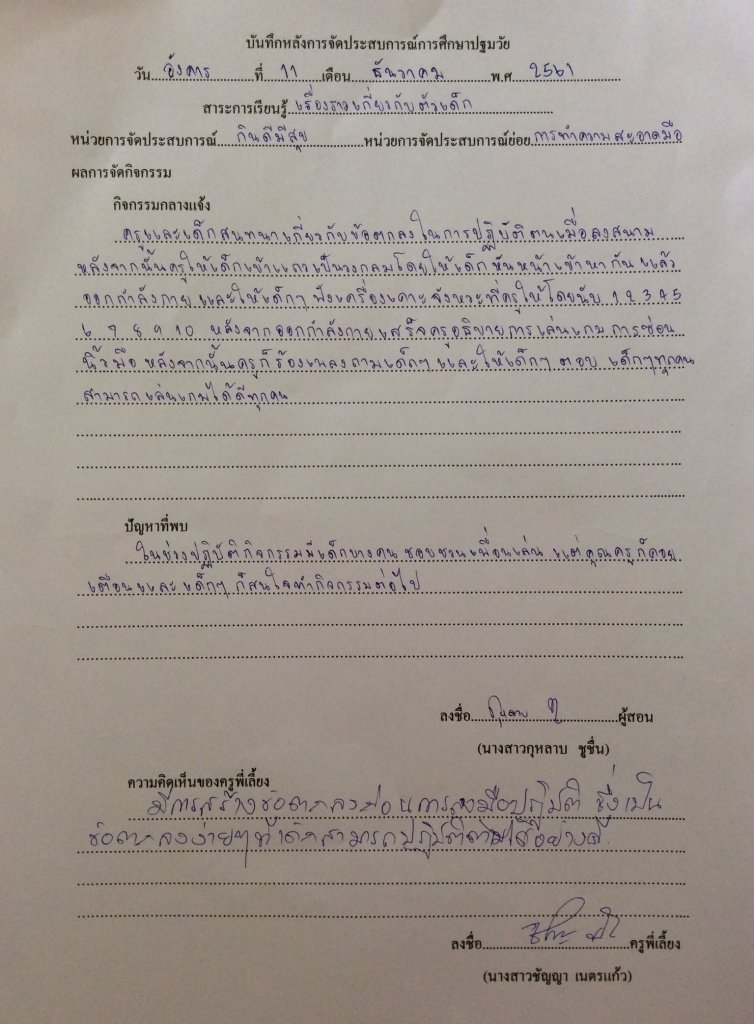 บันทึกหลังการจัดประสบการณ์การศึกษาปฐมวัย
วัน อังคาร ที่ 11 เดือน ธันวาคม พ.ศ 2561
สาระการเรียนรู้ เรื่องราวเกี่ยวกับตัวเด็ก
หน่วยการจัดประสบการณ์ กินดีมีสุข หน่วยการจัดประสบการณ์ย่อย การทำความสะอาดมือ
ผลการจัดกิจกรรม
กิจกรรมกลางแจ้ง
ครูและเด็กสนทนาเกี่ยวกับข้อตกลงในการปฏิบัติตนเมื่อลงสนาม
หลังจากนั้นครูให้เด็กเข้าแถวเป็นวงกลมโดยให้เด็กหันหน้าเข้าหากัน แล้ว
ออกกำลังกาย และให้เด็กๆ ฟังเครื่องเคาะจังหวะที่ครูให้โดยนับ 1 2 3 4 5
6 7 8 9 10 หลังจากออกกำลังกายเสร็จครูอธิบายการเล่นเกม การซ่อน
นิ้วมือ หลังจากนั้นครูก็ร้องเพลงถามเด็กๆ และให้เด็กๆ ตอบ เด็กๆทุกคน
สามารถเล่นเกมได้ดีทุกคน
ปัญหาที่พบ
ในช่วงปฏิบัติกิจกรรมมีเด็กบางคน ชอบชวนเพื่อนเล่น แต่คุณครูก็คอย
เตือนและ เด็กๆ ก็สนใจทำกิจกรรมต่อไป
ลงชื่อ กุหลาบ ผู้สอน
(นางสาวกุหลาบ ชูชื่น)
ความคิดเห็นของครูพี่เลี้ยง
มีการสร้างข้อตกลงก่อนการลงมือปฏิบัติ ซึ่งเป็น
ข้อตกลงง่ายๆที่เด็กสามารถปฏิบัติตามได้อย่างดี
ลงชื่อ ครูพี่เลี้ยง
(นางสาวชัญญา เนตรแก้ว)